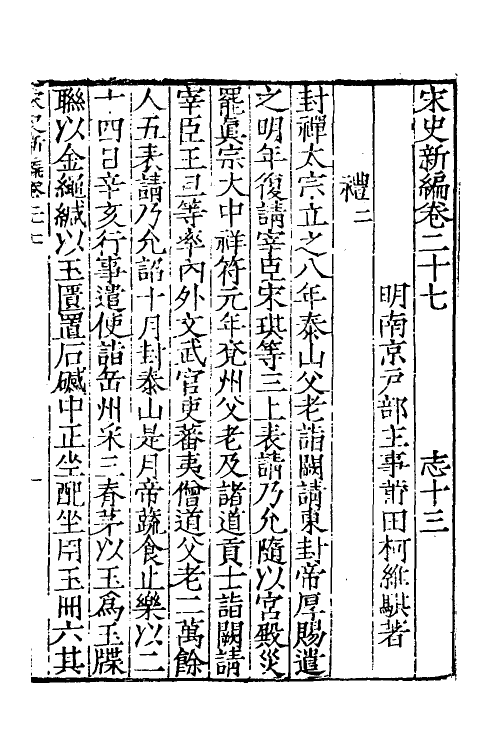 宋史新編卷二十七　志十三
明南京戶部主事莆田柯維騏著
禮二
封禪太宗立之八年泰山父老詣闕請東封帝厚賜遣
之明年復請宰臣宋琪等三上表請乃允隨以宮殿災
罷眞宗大中祥符元年兗州父老及諸道貢士詣闕請
宰臣王旦等率內外文武官吏蕃夷僧道父老二萬餘
人五表請乃允詔十月封泰山是月帝蔬食止樂以二
十四日辛亥行事遣使詣岳州采三脊茅以玉爲玉牒
聯以金繩緘以玉匱置石䃭中正坐配坐用玉冊六其
宋史新編卷二十七　一